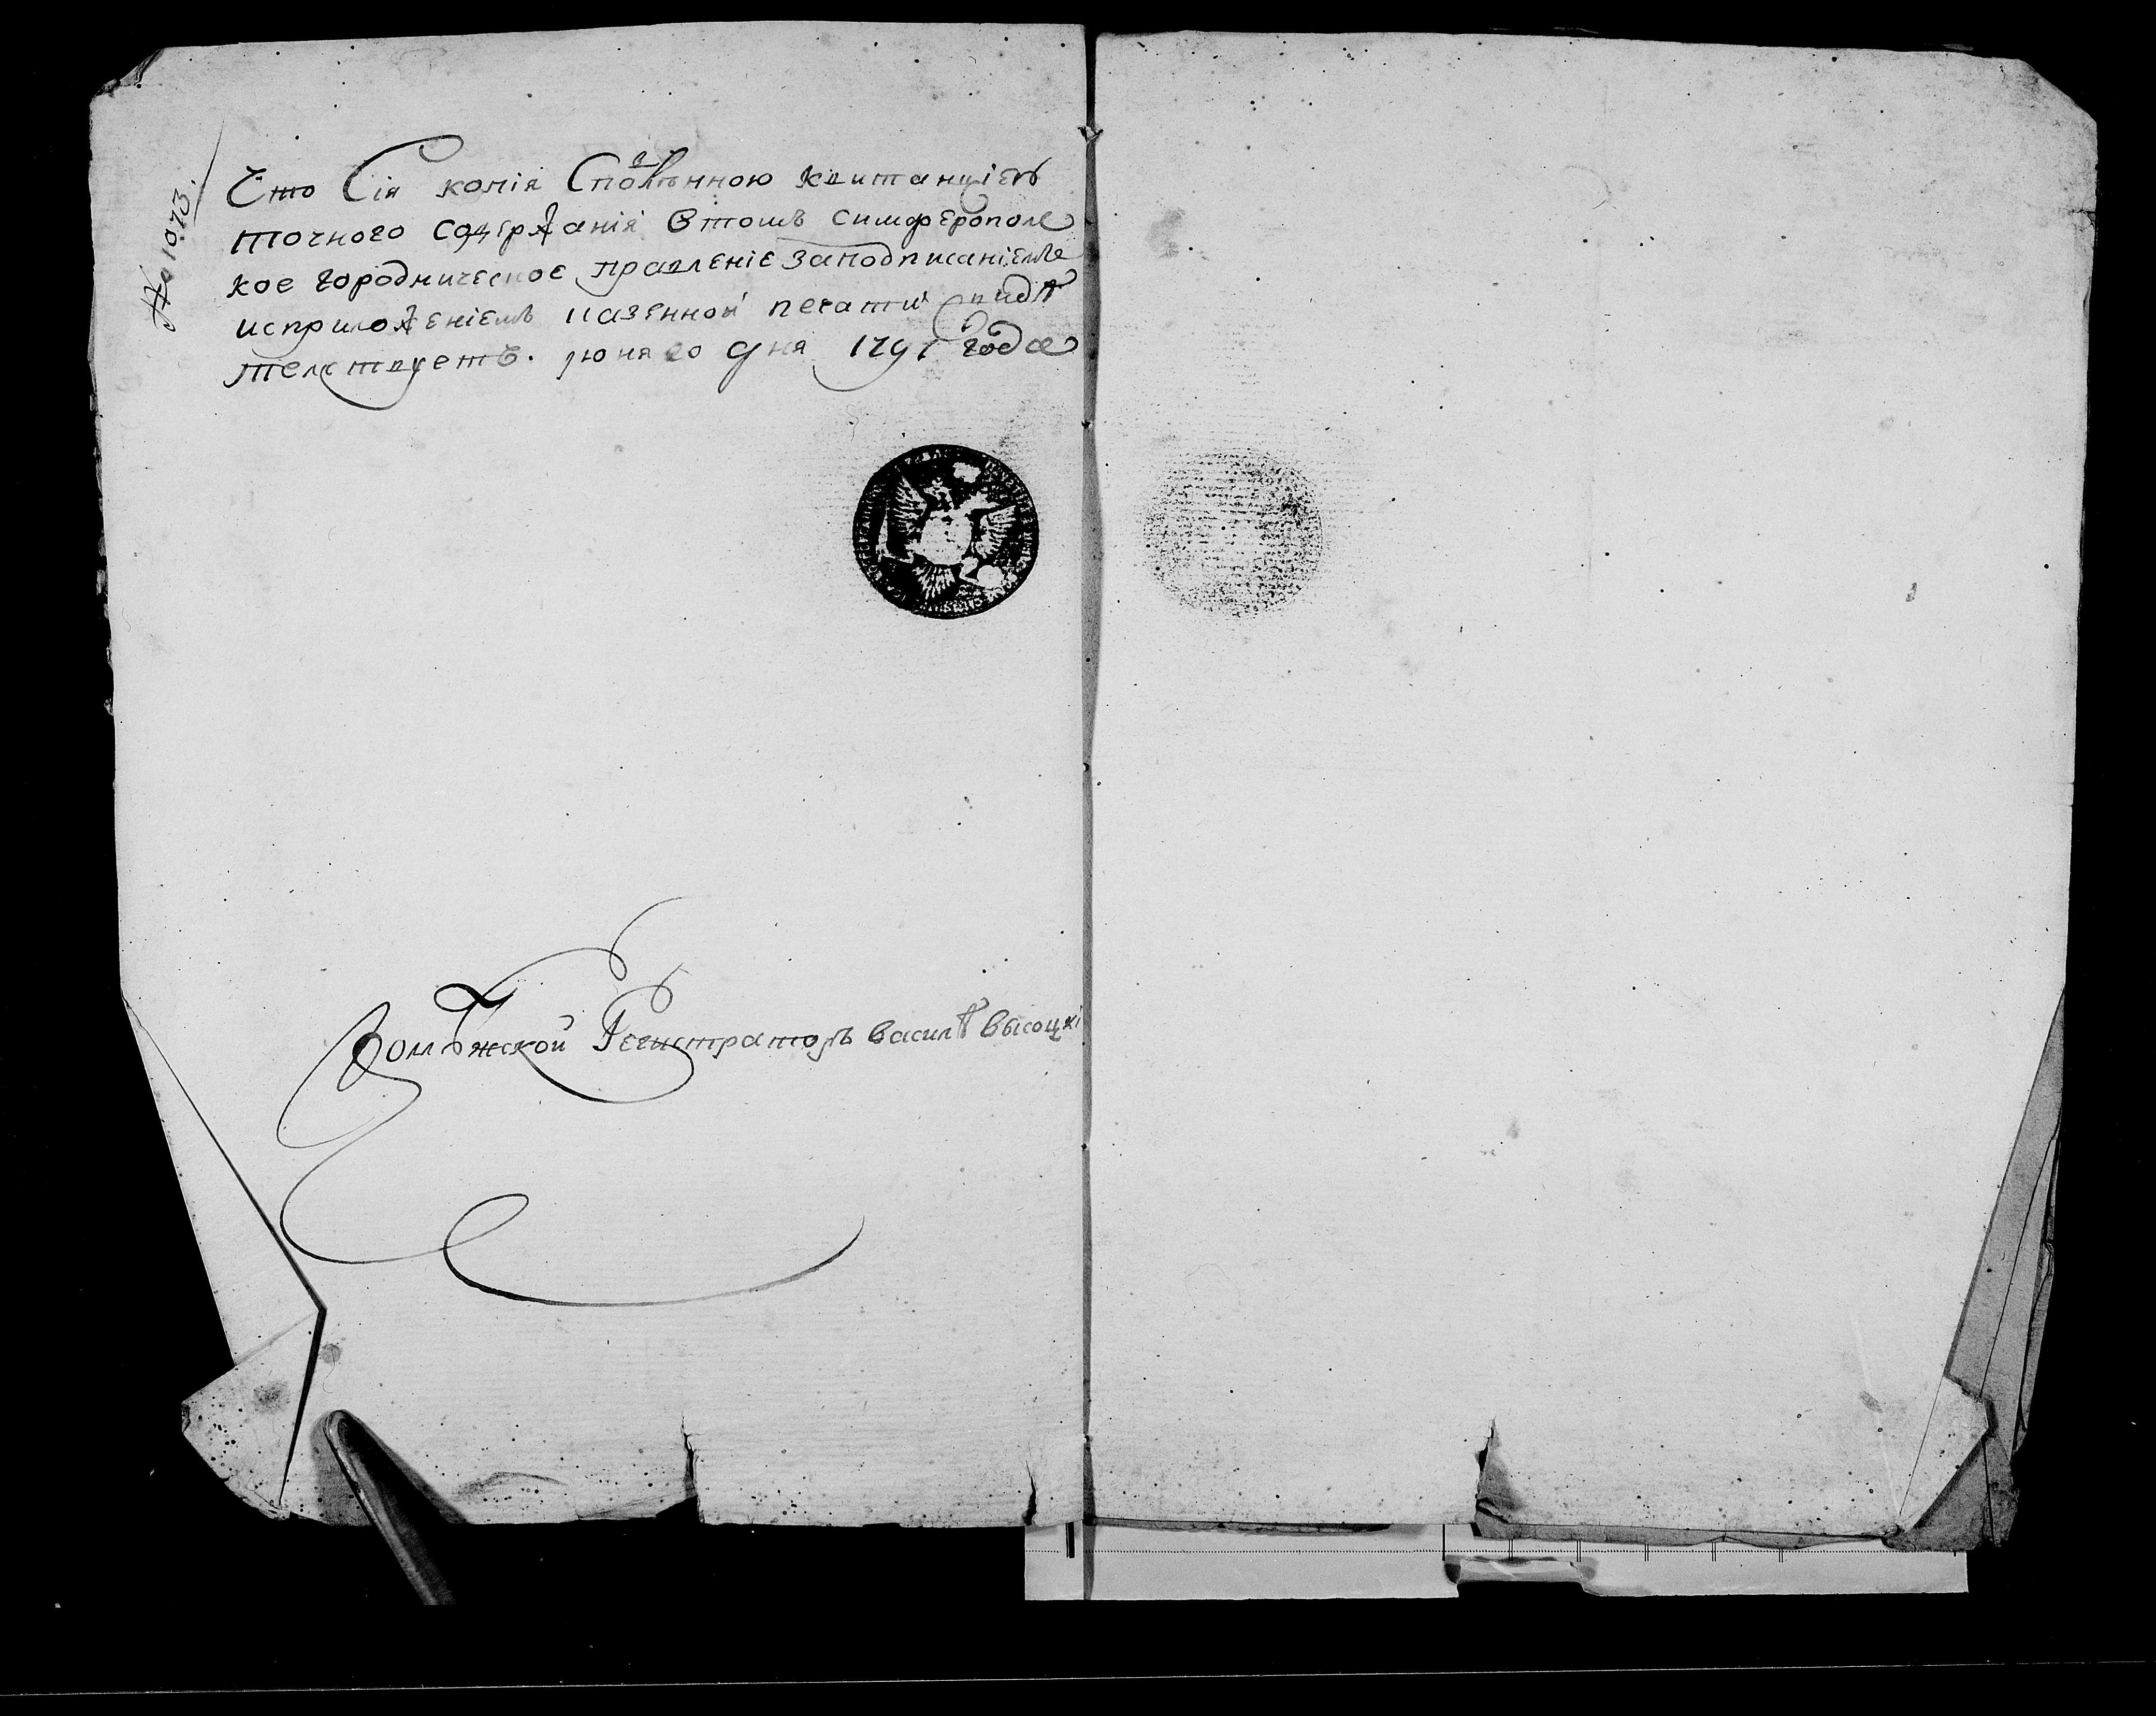 № 1073.
Что Сія копія Сподлѣнною квитанціею
точного содержанія Втомъ симферополс
кое городническое правленіе заподписаніемъ
исприложеніемъ казенной печати свидѣ
телствуетъ. іюня 20 дня 1791 года
Колѣжской Регистраторъ василѣ высоцкі